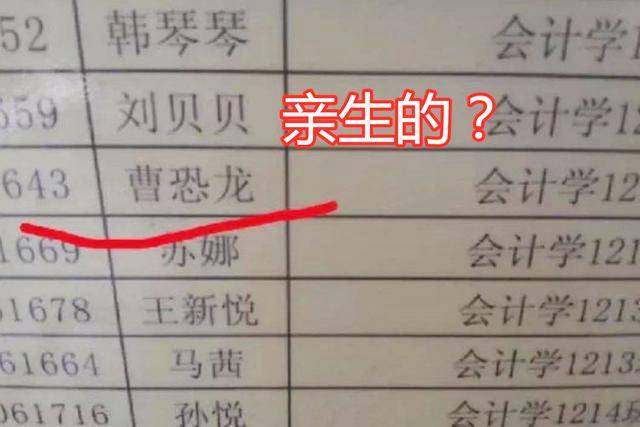 52 韩琴琴 会计学1
659 刘贝贝 会计学1
亲生的？
643 曹恐龙 会计学12
1669 苏娜 会计学121
61678 王新悦 会计学1213
061664 马茜 会计学1213
061716 孙悦 会计学1214班